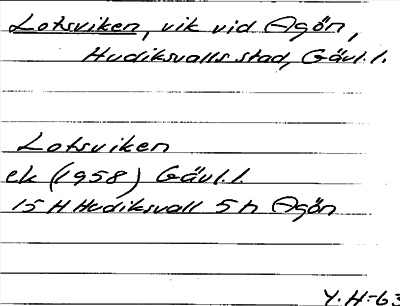 Lotsviken, vik vid Agön,
Hudiksvalls stad, Gävl.l.
Lotsviken
ek (1958) Gävl.l.
15 H Hudiksvall 5 h Agön
Y.H-63